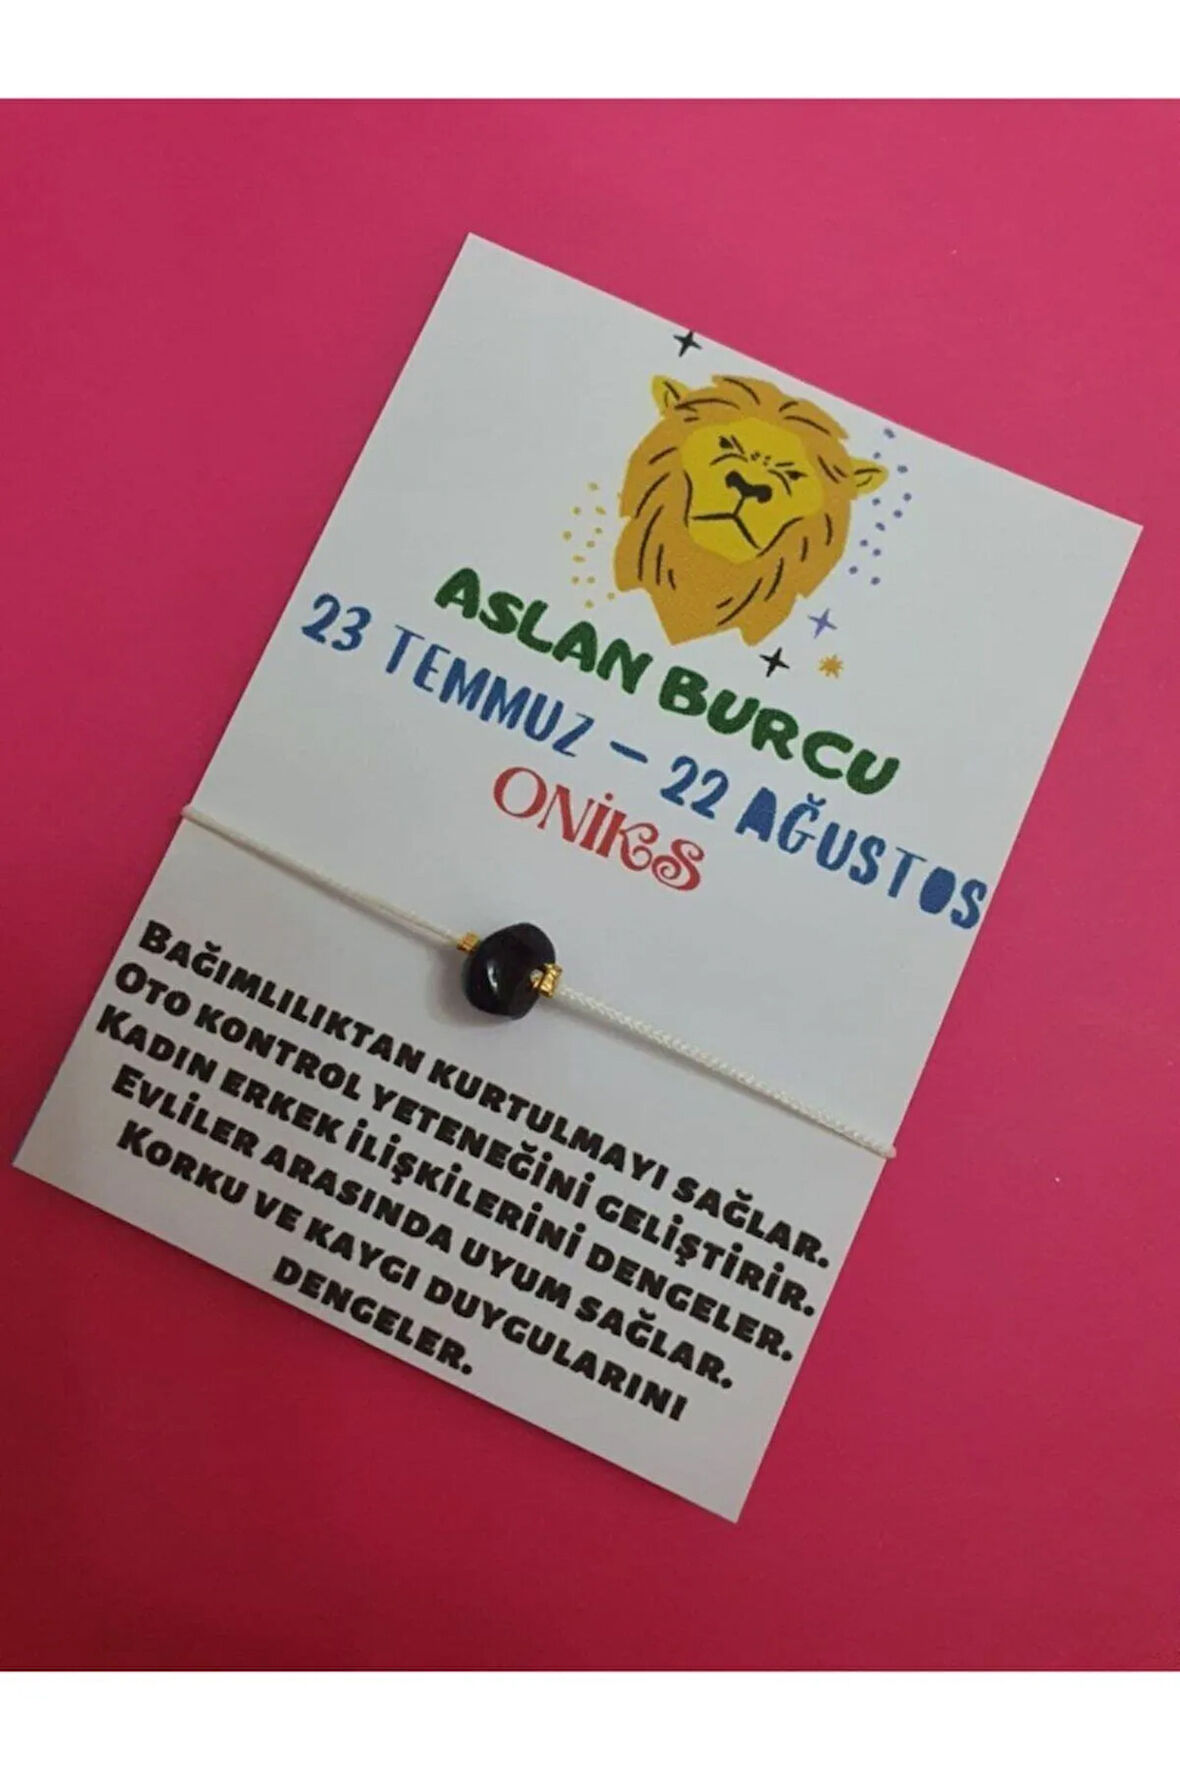 ASLAN BURCU
23 TEMMUZ - 22 AĞUSTOS
ONİKS
BAĞIMLILIKTAN KURTULMAYI SAĞLAR.
OTO KONTROL YETENEĞİNİ GELİŞTİRİR.
KADIN ERKEK İLİŞKİLERİNİ DENGELER.
EVLİLER ARASINDA UYUM SAĞLAR.
KORKU VE KAYGI DUYGULARINI
DENGELER.